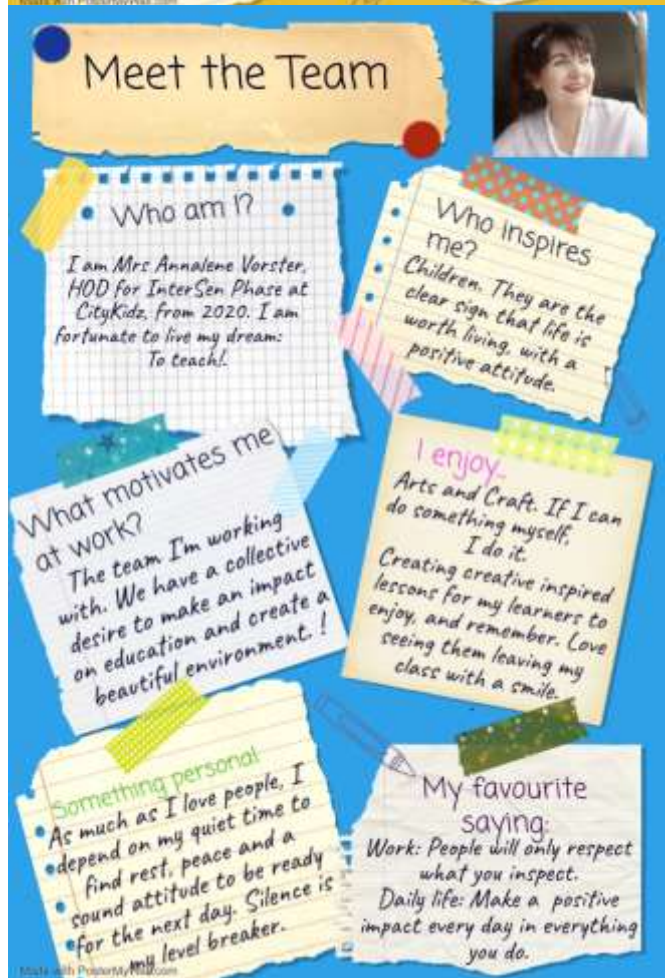 Made with PosterMyWall.com
Meet the Team
Who am I?
I am Mrs Annalene Vorster,
HOD for InterSen Phase at
CityKidz, from 2020. I am
fortunate to live my dream:
To teach!.
Who inspires
me?
Children. They are the
clear sign that life is
worth living, with a
positive attitude.
What motivates me
at work?
The team I'm working
with. We have a collective
desire to make an impact
on education and create a
beautiful environment. !
I enjoy..
Arts and Craft. If I can
do something myself,
I do it.
Creating creative inspired
lessons for my learners to
enjoy, and remember. Love
seeing them leaving my
class with a smile.
Something personal
As much as I love people, I
depend on my quiet time to
find rest, peace and a
sound attitude to be ready
for the next day. Silence is
my level breaker.
My favourite
saying:
Work: People will only respect
what you inspect.
Daily life: Make a positive
impact every day in everything
you do.
Made with PosterMyWall.com